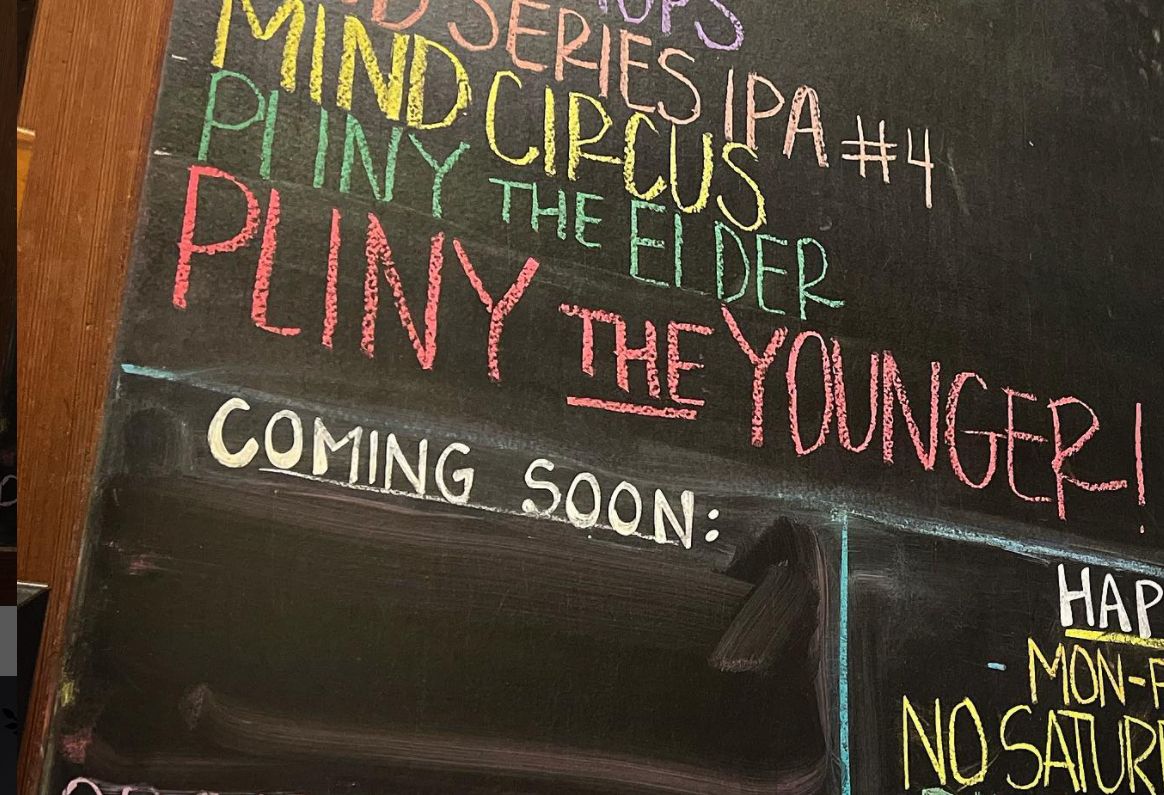 SERIES IPA #4
MIND CIRCUS
PLINY THE ELDER
PLINY THE YOUNGER!
COMING SOON:
HAP
- MON-F
NO SATUR